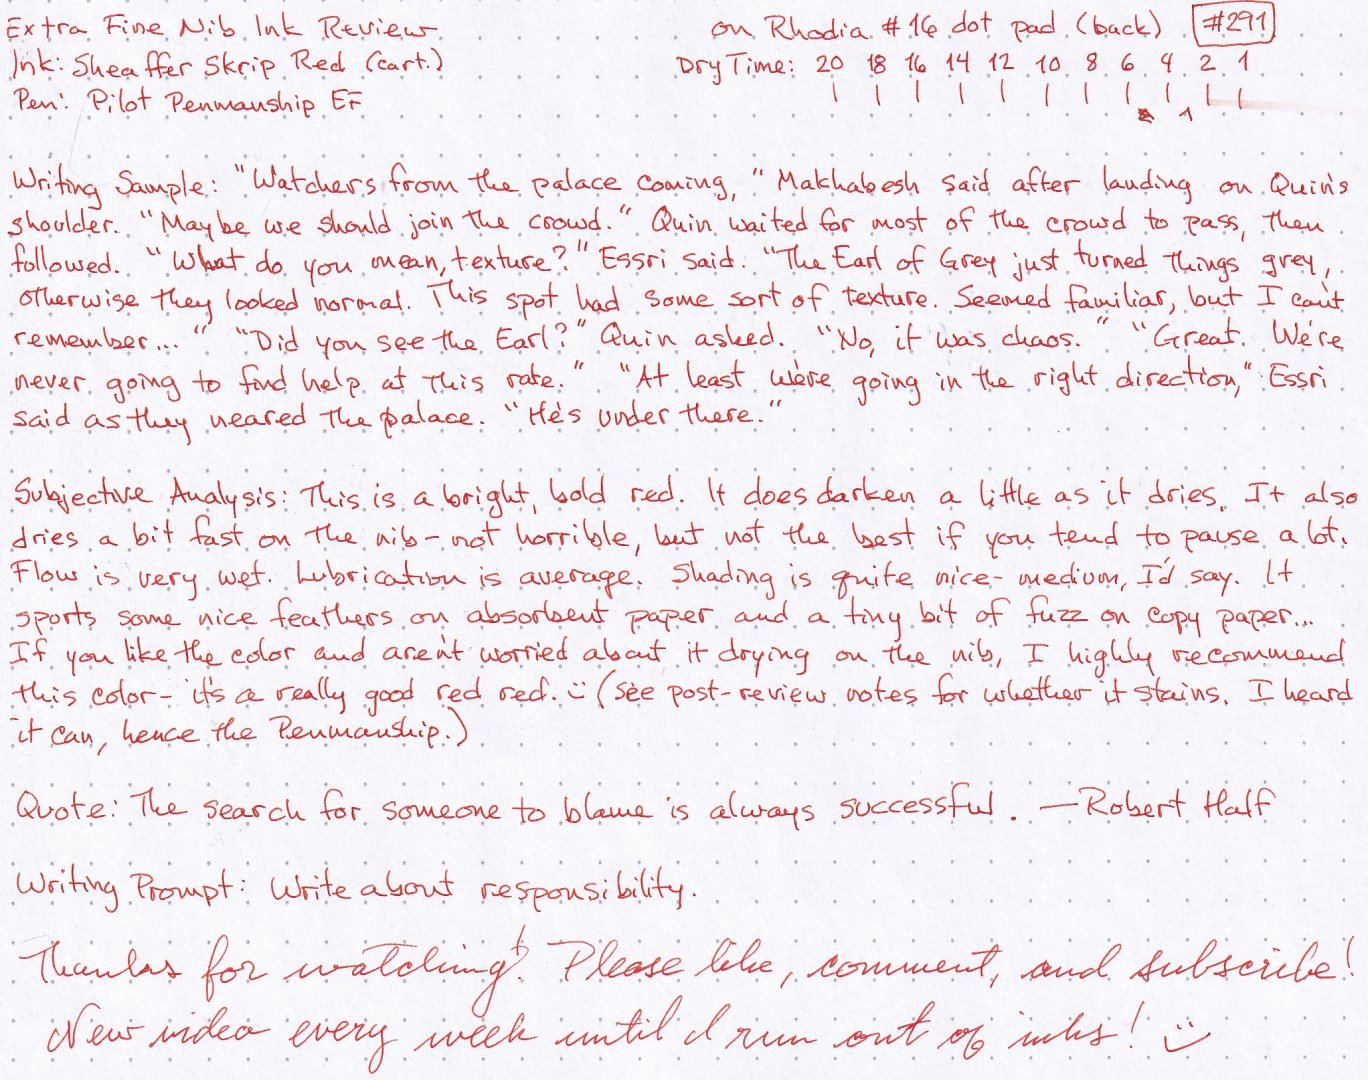 Extra Fine Nib Ink Review
on Rhodia #16 dot pad (back) #291
Ink: Sheaffer Skrip Red (cart.)
Dry Time: 20 18 16 14 12 10 8 6 4 2 1
Pen: Pilot Penmanship EF
Writing Sample: "Watchers from the palace coming," Makhabesh said after landing on Quin's
shoulder. "Maybe we should join the crowd." Quin waited for most of the crowd to pass, then
followed. "What do you mean, texture?" Essri said. "The Earl of Grey just turned things grey,
otherwise they looked normal. This spot had some sort of texture. Seemed familiar, but I can't
remember..." "Did you see the Earl?" Quin asked. "No, it was chaos." "Great. We're
never going to find help at this rate." "At least we're going in the right direction," Essri
said as they neared the palace. "He's under there."
Subjective Analysis: This is a bright, bold red. It does darken a little as it dries. It also
dries a bit fast on the nib - not horrible, but not the best if you tend to pause a lot.
Flow is very wet. Lubrication is average. Shading is quite nice - medium, I'd say. It
sports some nice feathers on absorbent paper and a tiny bit of fuzz on copy paper...
If you like the color and aren't worried about it drying on the nib, I highly recommend
this color - it's a really good red red. :) (See post-review notes for whether it stains. I heard
it can, hence the Penmanship.)
Quote: The search for someone to blame is always successful. —Robert Half
Writing Prompt: Write about responsibility.
Thanks for watching! Please like, comment, and subscribe!
New video every week until I run out of inks! :)